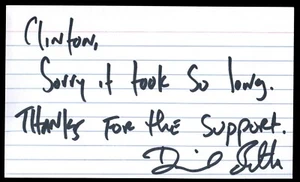 Clinton,
Sorry it took so long.
Thanks for the support.